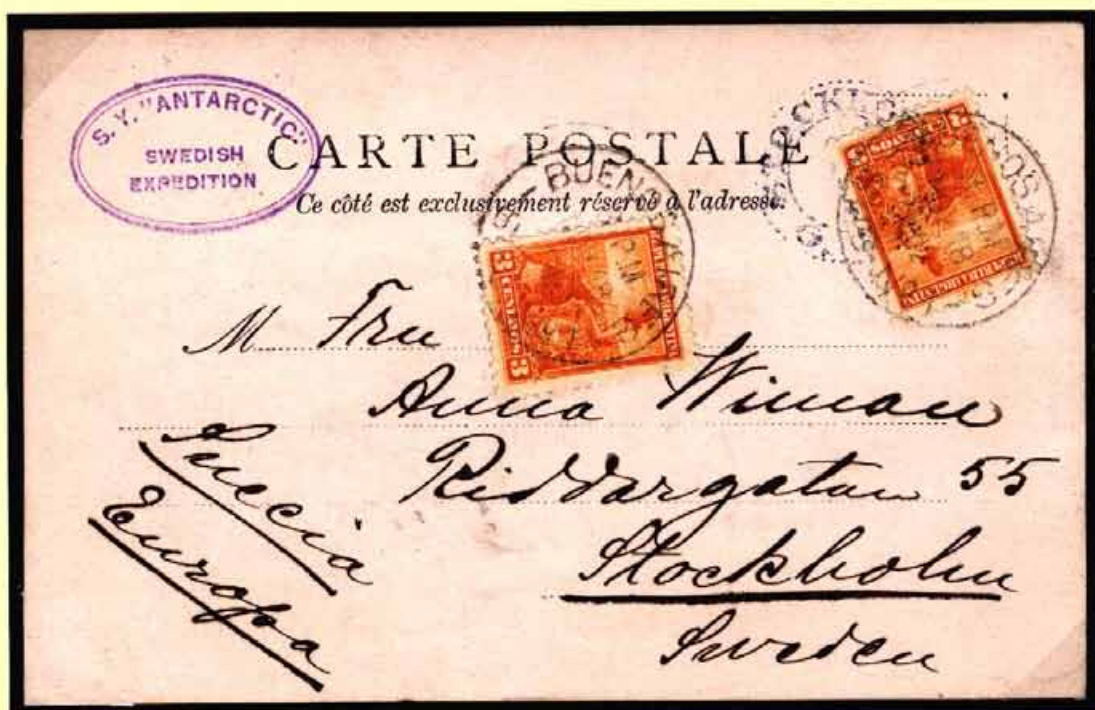 S. Y. "ANTARCTIC"
SWEDISH
EXPEDITION
CARTE POSTALE
Ce côté est exclusivement réservé à l'adresse.
BUENOS AIRES
3 CENTAVOS 3
M Fru
Anna Wiman
Riddargatan 55
Stockholm
Sweden
Suecia
Europa